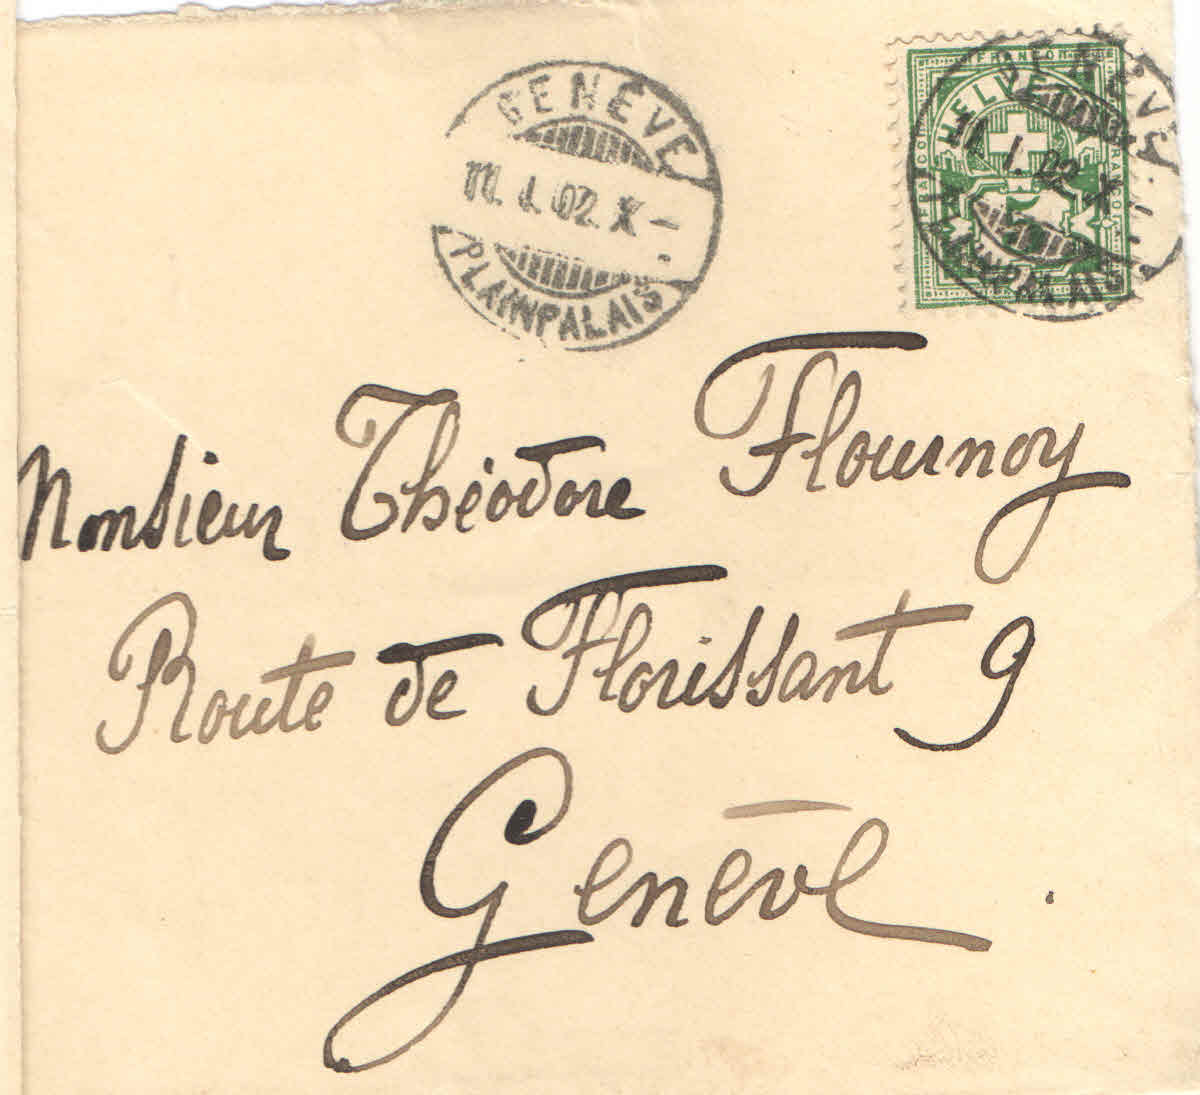 GENÈVE
11. I. 02. X –
PLAINPALAIS
HELVETIA
FRANCO
FRANCO
GENÈVE
11. I. 02. X –
PLAINPALAIS
Monsieur Théodore Flournoy
Route de Florissant 9
Genève.